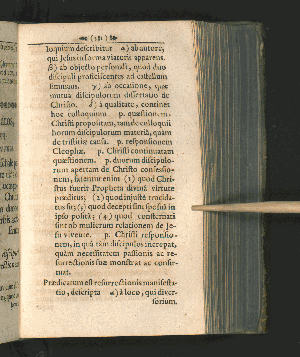 (181)
loquium describitur α) ab autore,
qui Jesus in forma viatoris apparens.
β) ab objecto personali, quod duo
discipuli proficiscentes ad castellum
Emmaus. γ) ab occasione, quæ
mutua discipulorum dissertatio de
Christo. δ) à qualitate, continet
hoc colloquium p. quæstionem
Christi propositam, tam de colloquii
horum discipulorum materiâ, quàm
de tristitiæ causa. p. responsionem
Cleophæ. p. Christi continuatam
quæstionem. p. duorum discipulo-
rum apertam de Christo confessio-
nem, fatentur enim (1) quod Chri-
stus fuerit Propheta divinâ virtute
præditus; (2) quod injustè tradita-
tus sit; (3) quod decepti sint spe suâ in
ipso posita; (4) quod consternati
sint ob mulierum relationem de Je-
su vivente. p. Christi responsio-
nem, in quâ tùm discipulos increpat,
quàm necessitatem passionis ac re-
surrectionis suæ monstrat ac confir-
mat.
Prædicatum est resurrectionis manifesta-
tio, descripta α) à loco, qui diver-
sorium.